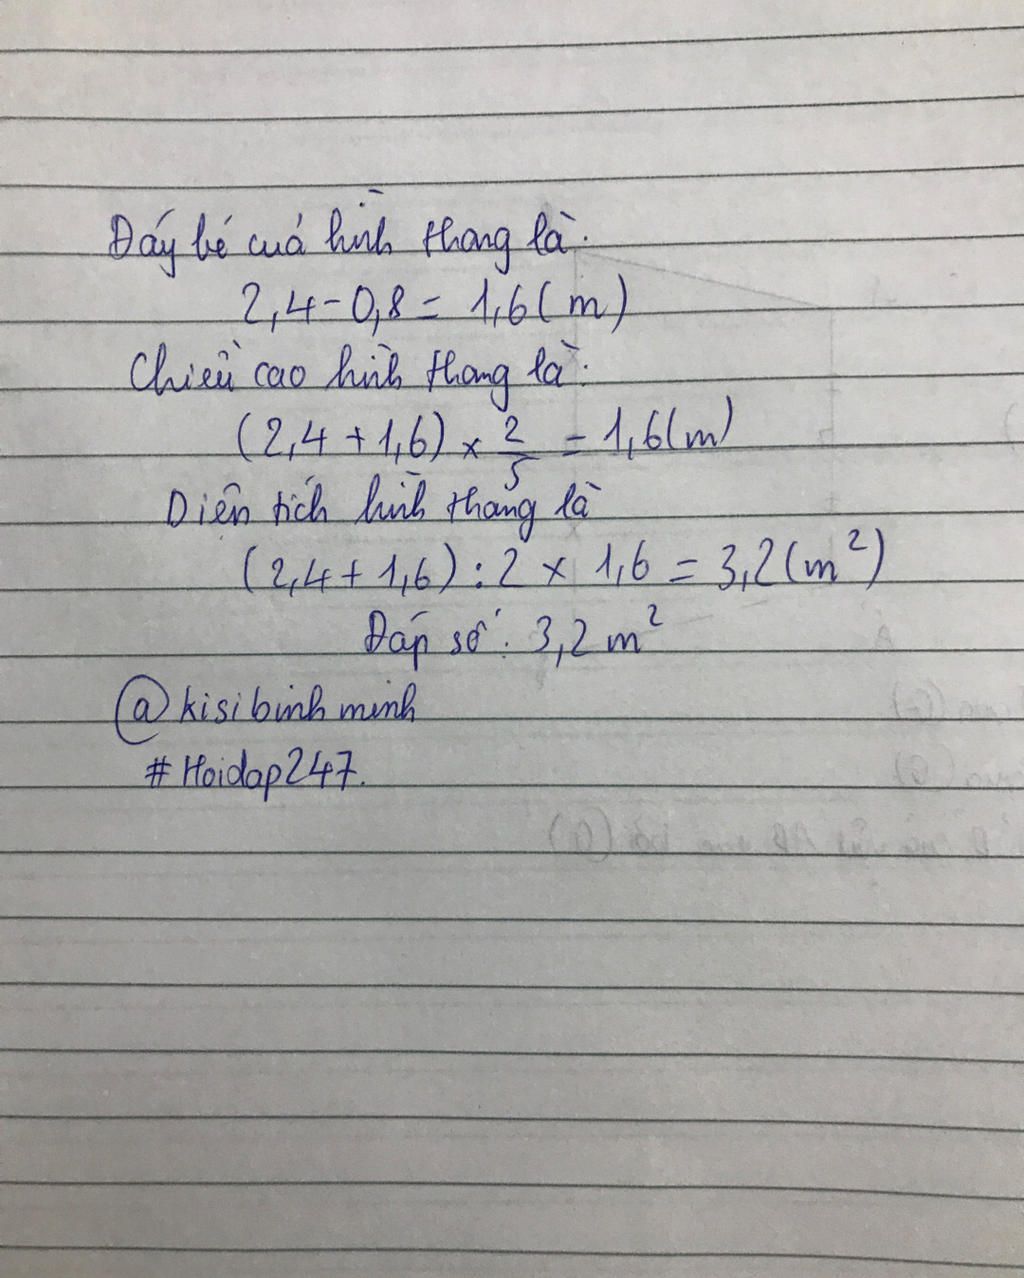 Đáy bé cuả hình thang là:
2,4 - 0,8 = 1,6 (m)
Chiều cao hình thang là:
(2,4 + 1,6) × 2/5 = 1,6 (m)
Diện tích hình thang là
(2,4 + 1,6) : 2 × 1,6 = 3,2 (m²)
Đáp số: 3,2 m²
@kisibinhminh
#Hoidap247.